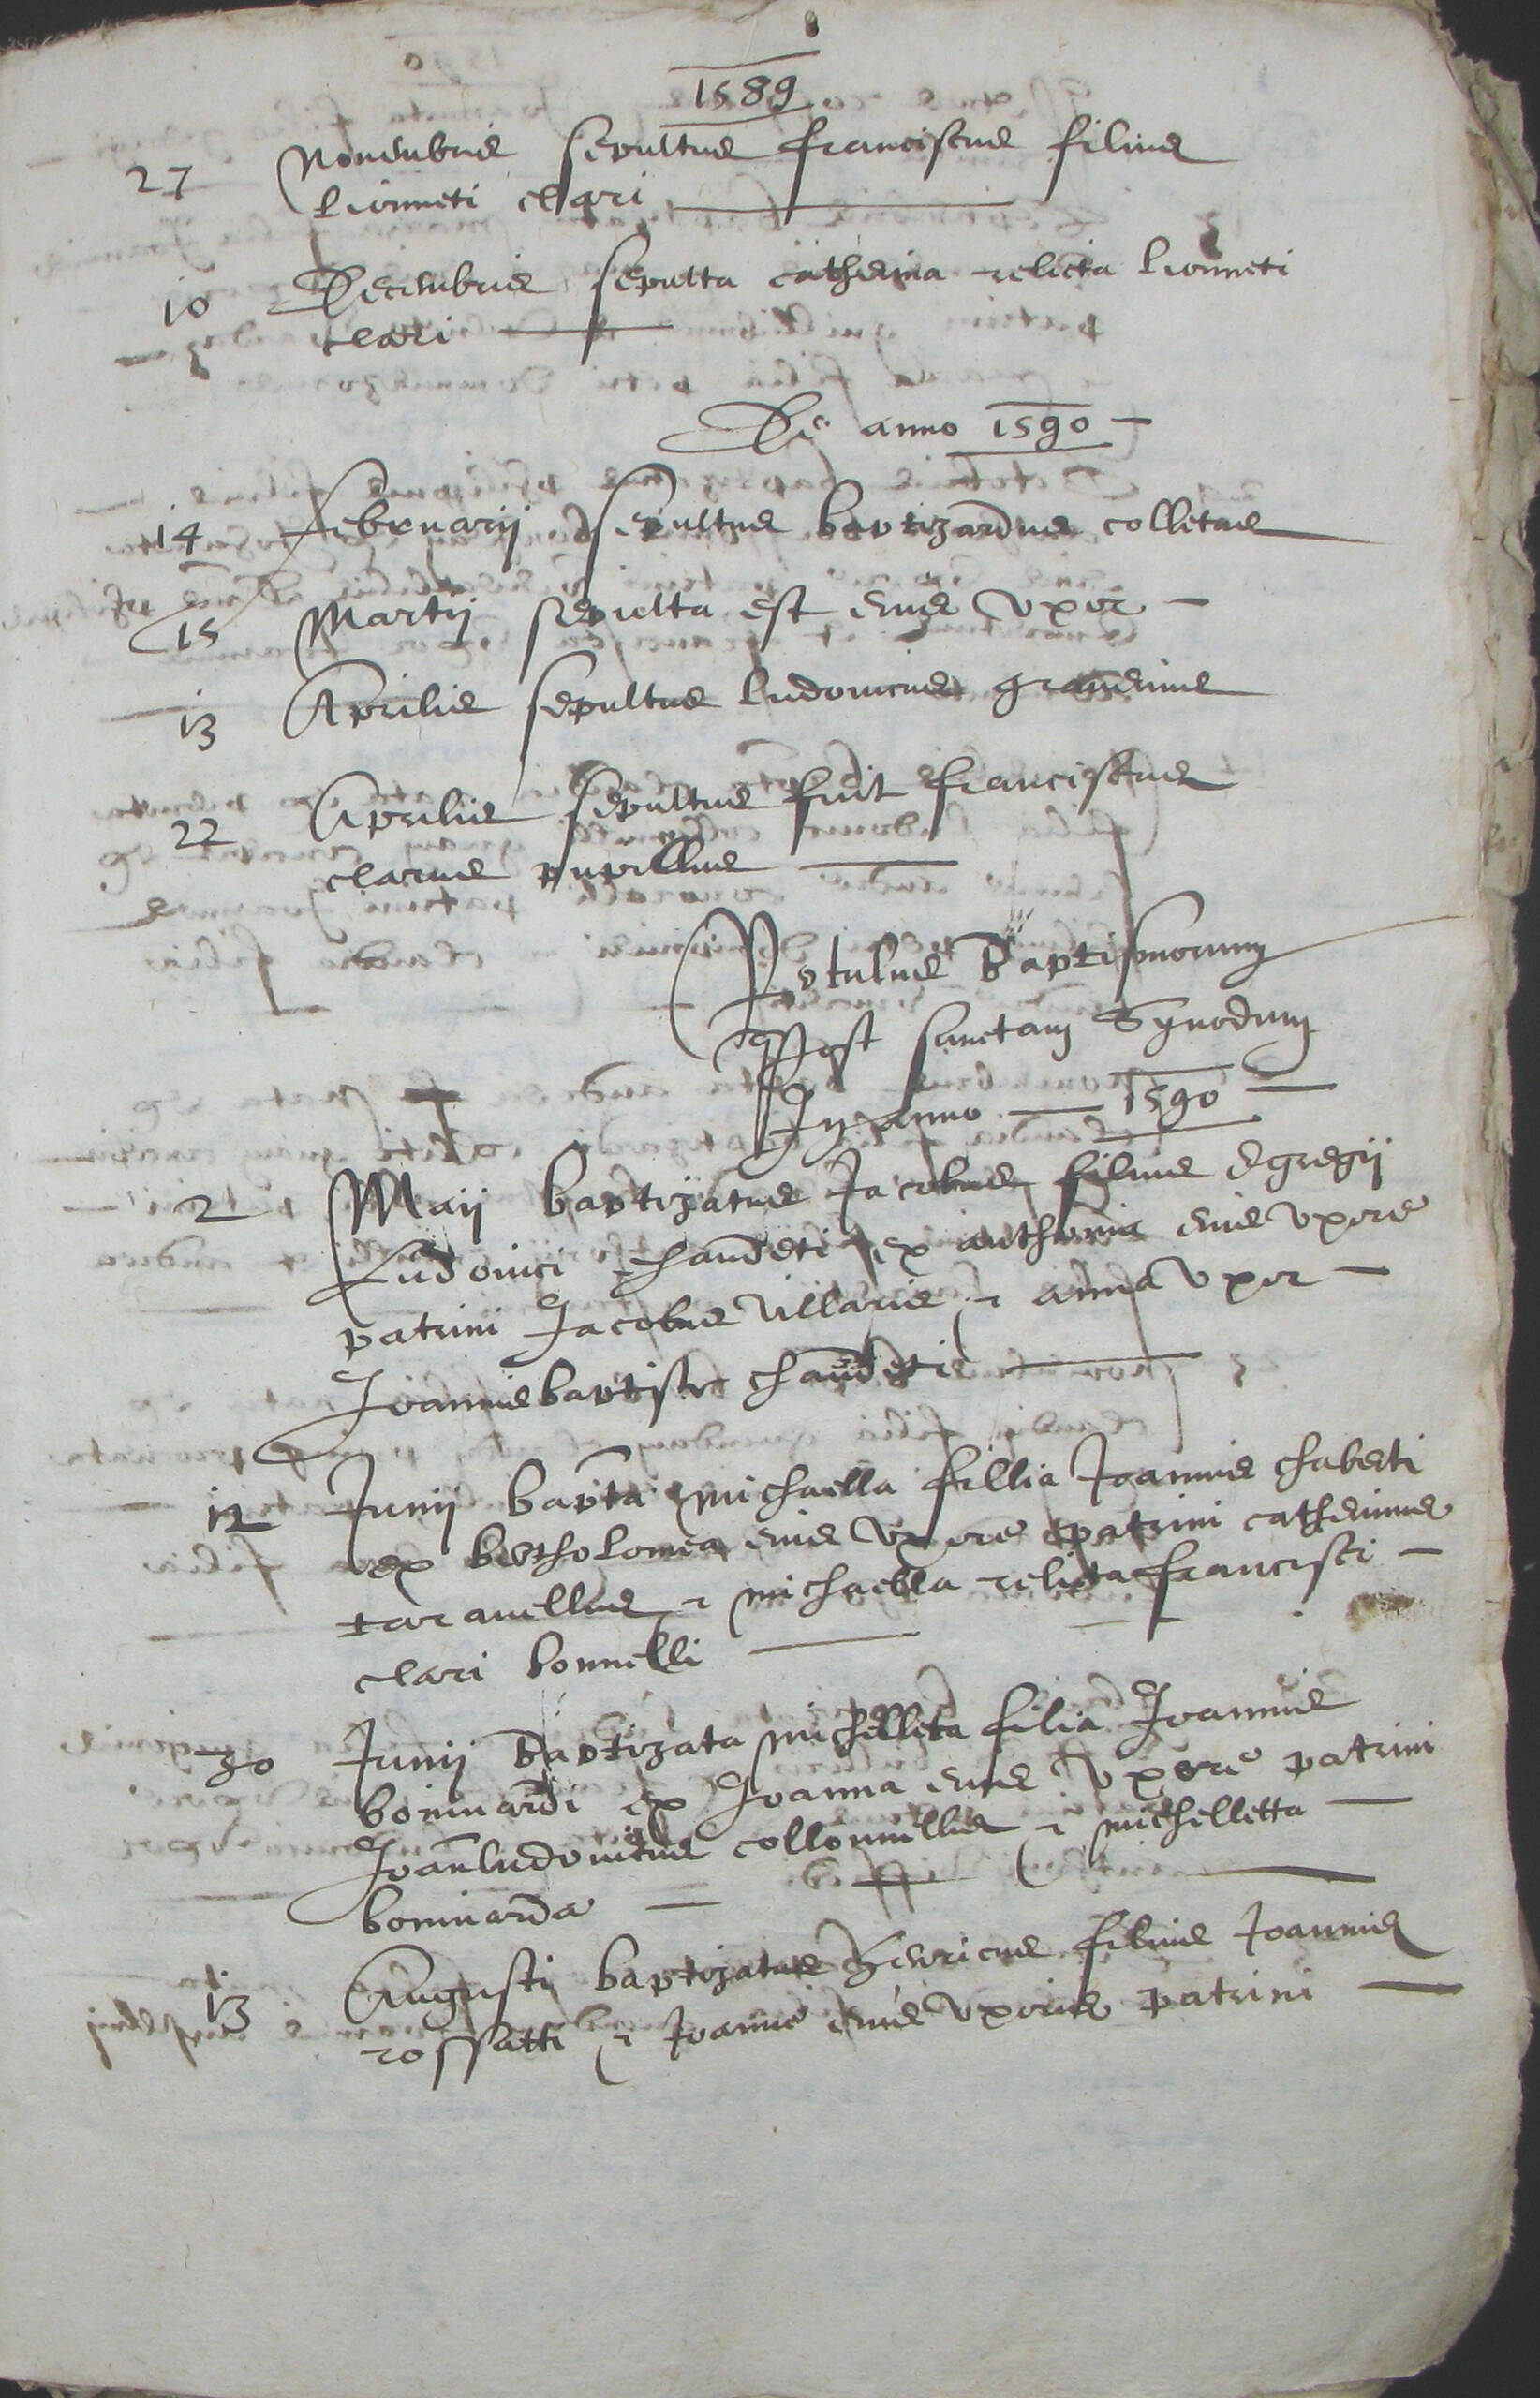 1589
27 Nouembris sepultus franciscus filius
Lionneti clari
10 Decembris sepulta catherina relicta Lionneti
clari
De anno 1590
14 februarij sepultus baptizardus colletus
15 Martij sepulta est eius vxor
13 Aprilis sepultus ludouicus
22 Aprilis sepultus fuit franciscus
clarus pupillus
Rotulus Baptismorum
Post sanctam Synodum
In anno 1590
2 Maij baptizatus Jacobus filius Egregij
Ludouici chaudeti ex anthonia eius vxore
patrini Jacobus villarius et anna vxor
Joannisbaptiste chaudetis
12 Junij bapta michaella fillia Joannis chaberti
ex bertholomea eius vxore patrini catherinus
tarauellus et michaella relicta francisci
clari bonnelli
30 Junij baptizata michelleta filia Joannis
boniuardi ex Joanna eius vxore patrini
Joanludouicus collonnellus et michelletta
boniuarda
13 Augusti baptizatus Henricus filius Joannis
rossatti et Joanne eius vxoris patrini